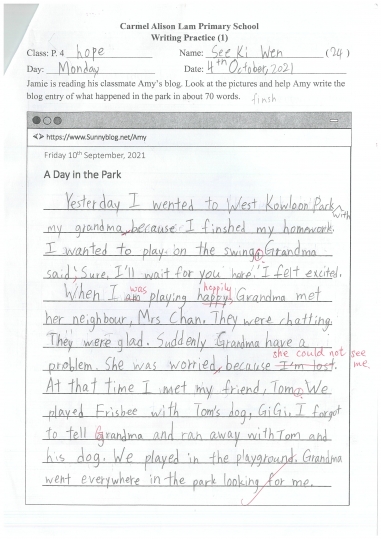 Carmel Alison Lam Primary School
Writing Practice (1)
Class: P. 4 hope Name: See Ki Wen (24)
Day: Monday Date: 4th October, 2021
Jamie is reading his classmate Amy's blog. Look at the pictures and help Amy write the
blog entry of what happened in the park in about 70 words. finsh
https://www.Sunnyblog.net/Amy
Friday 10th September, 2021
A Day in the Park
Yesterday I wented to West Kowloon Park
with
my grandma, because I finshed my homework.
I wanted to play on the swing. Grandma
said, "Sure, I'll wait for you here." I felt excited.
was happily
When I am playing happy, Grandma met
her neighbour, Mrs Chan. They were chatting.
They were glad. Suddenly Grandma have a
she could not see
problem. She was worried, because I'm lost.
me.
At that time I met my friend, Tom. We
played Frisbee with Tom's dog, GiGi. I forgot
to tell Grandma and ran away with Tom and
his dog. We played in the playground. Grandma
went everywhere in the park looking for me.